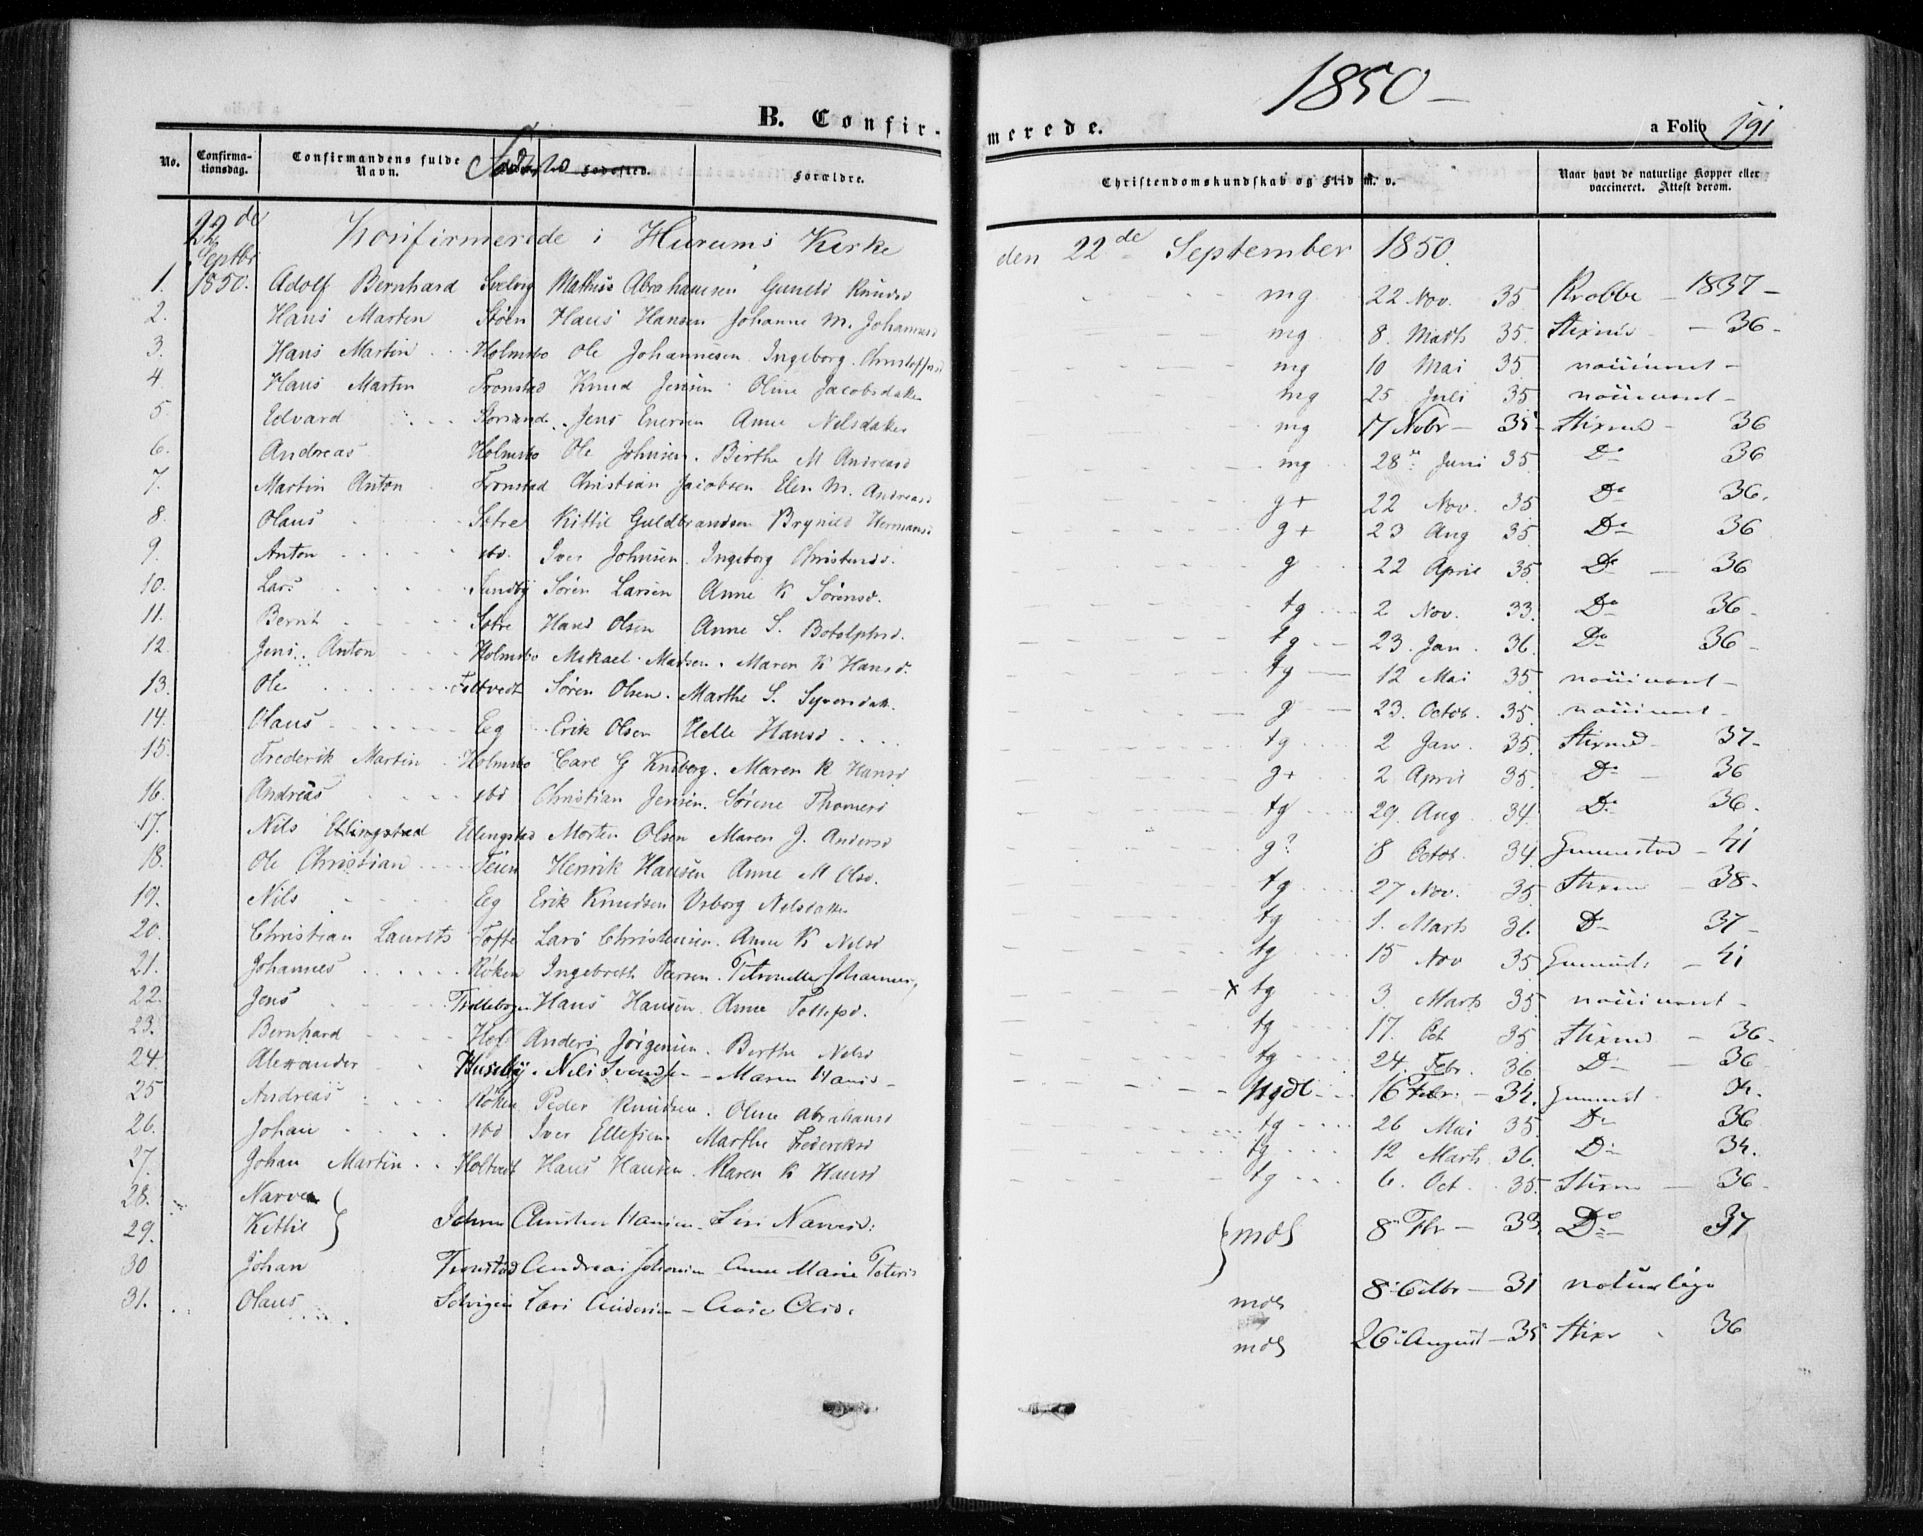 1850
B. Confirmerede.
a Folio 191
No. Confirmationsdag. Confirmandens fulde Navn. Fødested. Forældre. Christendomskundskab og Flid m. v. Naar havt de naturlige Kopper eller vaccineret. Attest derom.
22de Septbr 1850. Konfirmerede i Hurums Kirke den 22de September 1850.
1. Adolf Bernhard Svelvig Mathias Abrahamsen Gunild Knudsd mg 22 Nov. 35. Krobbe - 1837 -
2. Hans Martin Støen Hans Hansen Johanne M. Johannesd mg 8. Marts 35. - 36 -
3. Hans Martin Holmsbo Ole Johannesen Ingeborg Christoffersd mg 10 Mai 35
4. Hans Martin Tronstad Knud Jensen Oline Jacobsdatter mg 25 Juli 35
5. Edvard Jens Enersen Anne Nilsdatter mg 17 Nobr - 35 - 36
6. Andreas Holmsbo Ole Johnsen. Birthe M Andreasd mg 28de Juni 35. Do 36
7. Martin Anton Tronstad Christian Jacobsen Elen M. Andreasd g+ 22 Nov. 35 Do 36.
8. Olaus Sætre Kittil Guldbrandsen Brynild Hermansd g+ 23 Aug 35 Do 36
9. Anton ibd. Iver Johnsen. Ingeborg Christensd. g 22 April 35 Do - 36
10. Lars Sundby Søren Larsen Anne K Sørensd. tg 2 Nov. 33. Do 36 -
11. Bernt Sætre Hans Olsen Anne S. Botolphsd. tg 23. Jan. 36. Do 36 -
12. Jens Anton Holmsbo Mikael Madsen. Maren K Hansd. tg 12 Mai 35
13. Ole Søren Olsen. Marthe S. Syversdatt. g 23. Octob. 35.
14. Olaus Eeg Erik Olsen Helle Hansd tg 2 Jan. 35. 37 -
15. Frederik Martin Holmsbo Carl G Maren K Hansd g+ 2 April 35. Do - 36
16. Andreas ibd Christian Jensen. Sørine Thomesd tg 29. Aug 34. Do 36.
17. Nils Ellingstad Ellingstad Morten Olsen Maren J. Andersd g? 8 Octob. 34. - 41
18. Ole Christian Teien Henrik Hansen Anne M Olsd. tg 27 Nov. 35. - 38.
19. Nils Eeg Erik Knudsen Nilsdatter tg 1. Marts 36. Do 37 -
20. Christian Laurits Tofte Lars Christensen. Anne K Nilsd tg 15 Nov 35 - 41
21. Johannes Røken Ingebreth Petronelle Johannes. x tg 3. Marts 35.
22. Jens Trollebogen Hans Hansen. Anne Tollefsd. tg 17. Oct 35 - 36.
23. Bernhard Hof Anders Jørgensen. Berthe Nilsd tg 24. Febr. 36. Do 36.
24. Alexander Huseby Nils Svendsen - Maren Hansd - Ngdl 16 Febr: - 34.
25 Andreas Røken Peder Knudsen. Oline Abrahamsd tg 26 Mai 35. Do 36
26. Johan ibd Iver Ellefsen Marthe Frederiksd tg 12 Marts 36. Do 34.
27. Johan Martin Holtvedt Hans Hansen. Maren K Hansd tg 6. Oct. 35. - 36 -
28. Narve
29. Kittil Hansen - Siri Narvesd: mdl 8 - 33. Do 37
30 Johan Tronstad Andreas Johnsen - Anne Marie mdl 8 - 31 naturlige
31. Olaus Lars Andersen - Olsd. mdl 26 August - 35 36